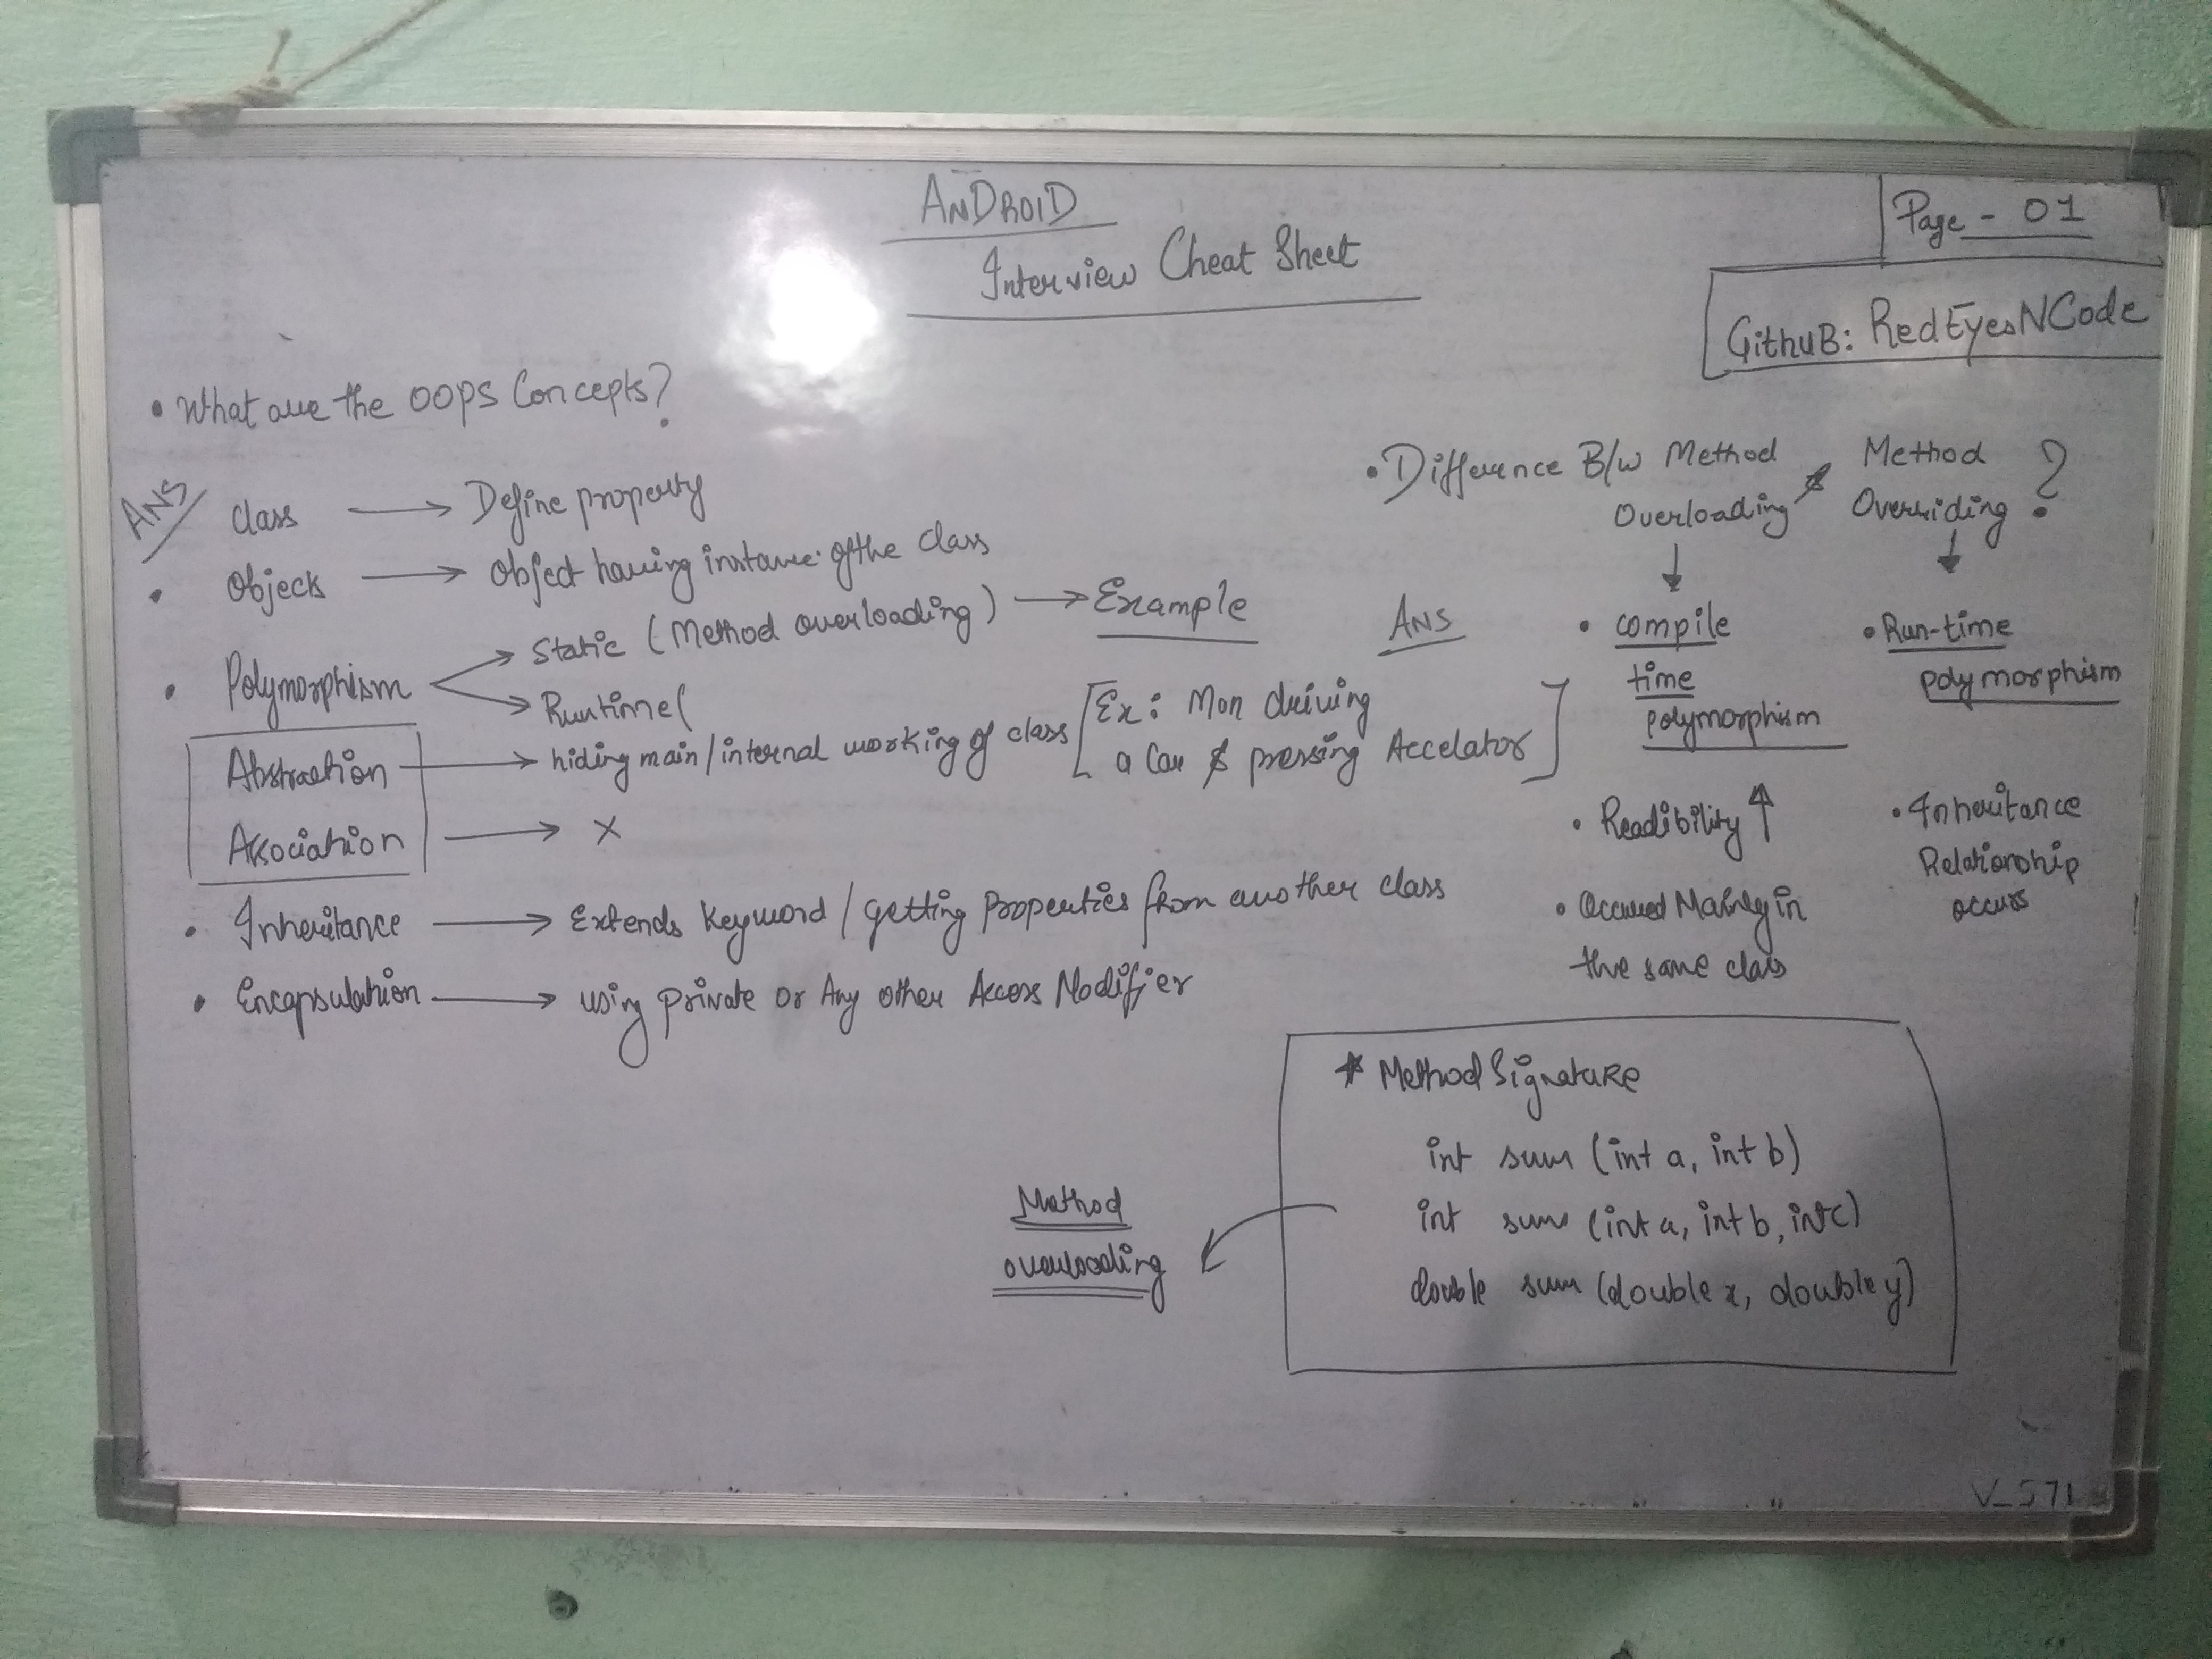 ANDROID
Interview Cheat Sheet
Page - 01
GithuB: RedEyesNCode
• What are the OOPS Concepts?
ANS
Class → Define property
• Objects → Object having instance of the class
• Polymorphism → Static (Method overloading) → Example
→ Runtime(
Abstraction → hiding main/internal working of class [Ex: Man driving
a Car & pressing Accelator]
Association → X
• Inheritance → Extends Keyword / getting Properties from another class
• Encapsulation → using private Or Any other Access Modifier
• Difference B/w Method Overloading & Method Overriding ?
Ans
• compile
time
polymorphism
• Readibility ↑
• Occured Mainly in
the same class
• Run-time
polymorphism
• Inheritance
Relationship
occurs
* Method Signature
int sum (int a, int b)
int sum (int a, int b, int c)
double sum (double x, double y)
Method
overloading
V_571